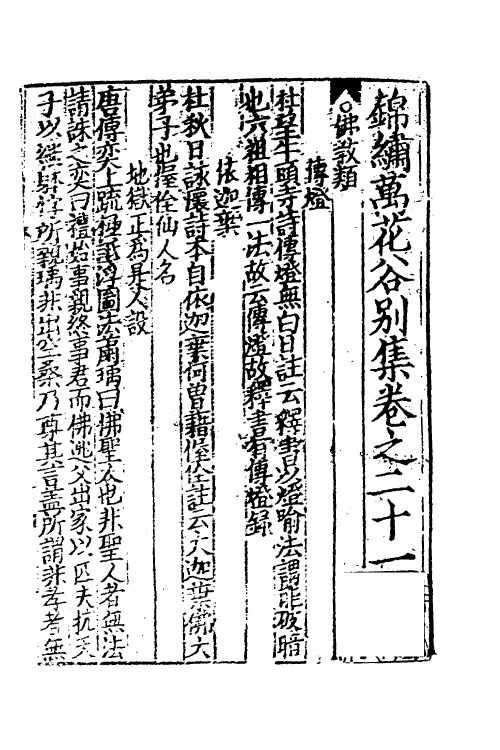 錦繡萬花谷別集卷之二十一
○佛教類
傳燈
杜望牛頭寺詩傳燈無白日註云釋書以燈喻法謂能破暗
也六祖相傳一法故云傳燈故釋書有傳燈錄
依迦葉
杜秋日詠懷詩本自依迦葉何曽藉偓佺註云大迦葉佛大
弟子也偓佺仙人名
地獄正為是人設
唐傅奕上疏極詆浮圖法蕭瑀曰佛聖人也非聖人者無法
請誅之奕曰禮始事親終事君而佛逃父出家以匹夫抗天
子以繼體悖所親瑀非出空桑乃尊其言蓋所謂非孝者無